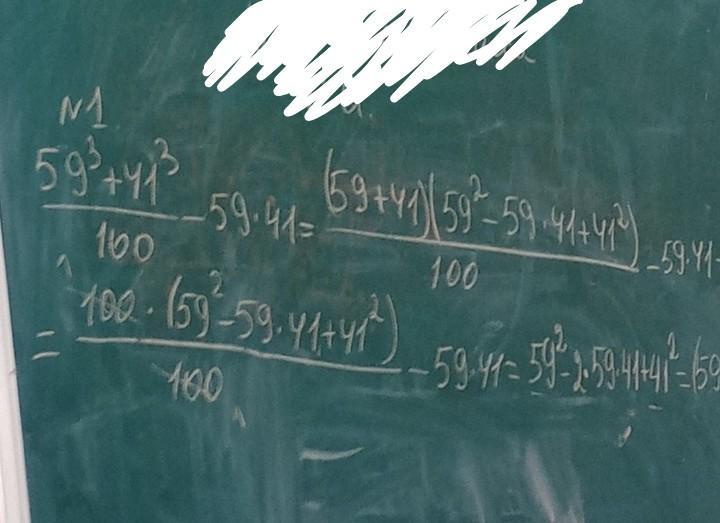 N1
(59³+41³)/100 - 59·41 = ((59+41)(59²-59·41+41²))/100 - 59·41
= (100·(59²-59·41+41²))/100 - 59·41 = 59²-2·59·41+41² = (59